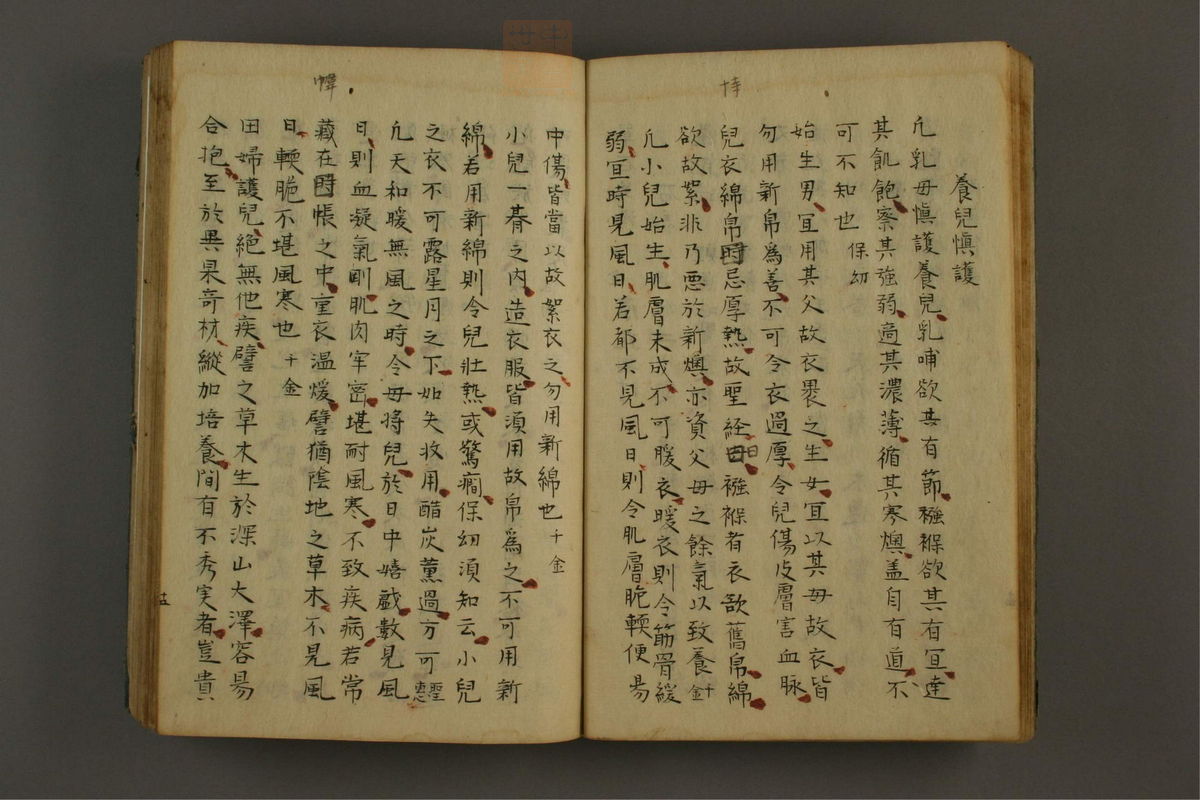 時
養兒慎護
凢乳母慎護養兒乳哺欲其有節襁褓欲其有冝達
其飢飽察其強弱適其濃薄循其寒燠盖自有道不
可不知也 保幼
始生男冝用其父故衣褁之生女冝以其母故衣皆
勿用新帛爲善不可令衣過厚令兒傷皮膚害血脉
兒衣綿帛時忌厚熱故聖経曰襁褓者衣敌舊帛綿
欲故絮非乃悪於新燠亦資父母之餘氣以致養 千金
凢小兒始生肌膚未成不可暖衣暖衣則令筋骨緩
弱冝時見風日若都不見風日則令肌膚脆軟便易
中傷皆當以故絮衣之勿用新綿也 千金
小兒一朞之内造衣服皆湏用故帛爲之不可用新
綿若用新綿則令兒壮熱或驚癇保幼湏知云小兒
之衣不可露星月之下如失收用醋炭薫過方可
凢天和暖無風之時令母将兒於日中嬉戯數見風
日則血凝氣剛肌肉牢密堪耐風寒不致疾病若常
幃
藏在帳之中重衣温煖譬猶陰地之草木不見風
日軟脆不堪風寒也 千金
田婦護兒絕無他疾譬之草木生於深山大澤容易
合抱至於異果奇材縱加培養間有不秀実者豈貴